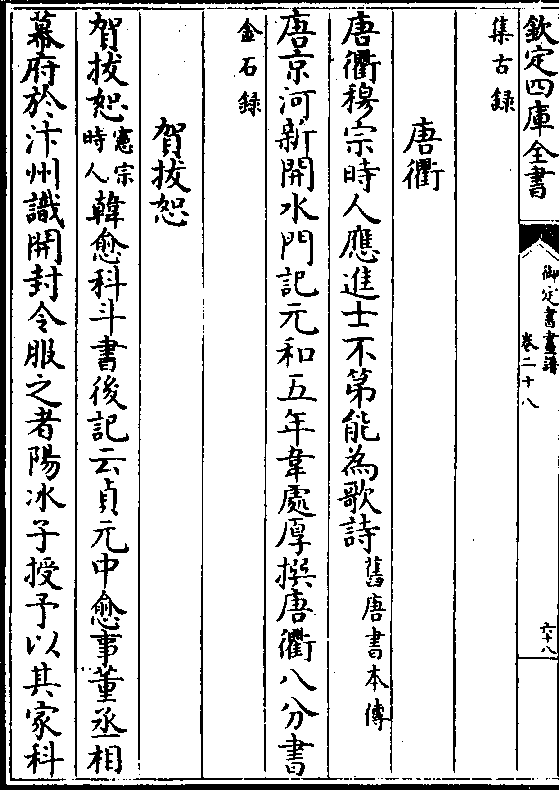 欽定四庫全書
御定書畫譜
卷二十八
六十八
集古錄
唐衢
唐衢穆宗時人應進士不第能為歌詩舊唐書本傳
唐京河新開水門記元和五年韋處厚撰唐衢八分書
金石錄
賀拔恕
賀拔恕憲宗時人韓愈科斗書後記云貞元中愈事董丞相
幕府於汴州識開封令服之者陽冰子授予以其家科